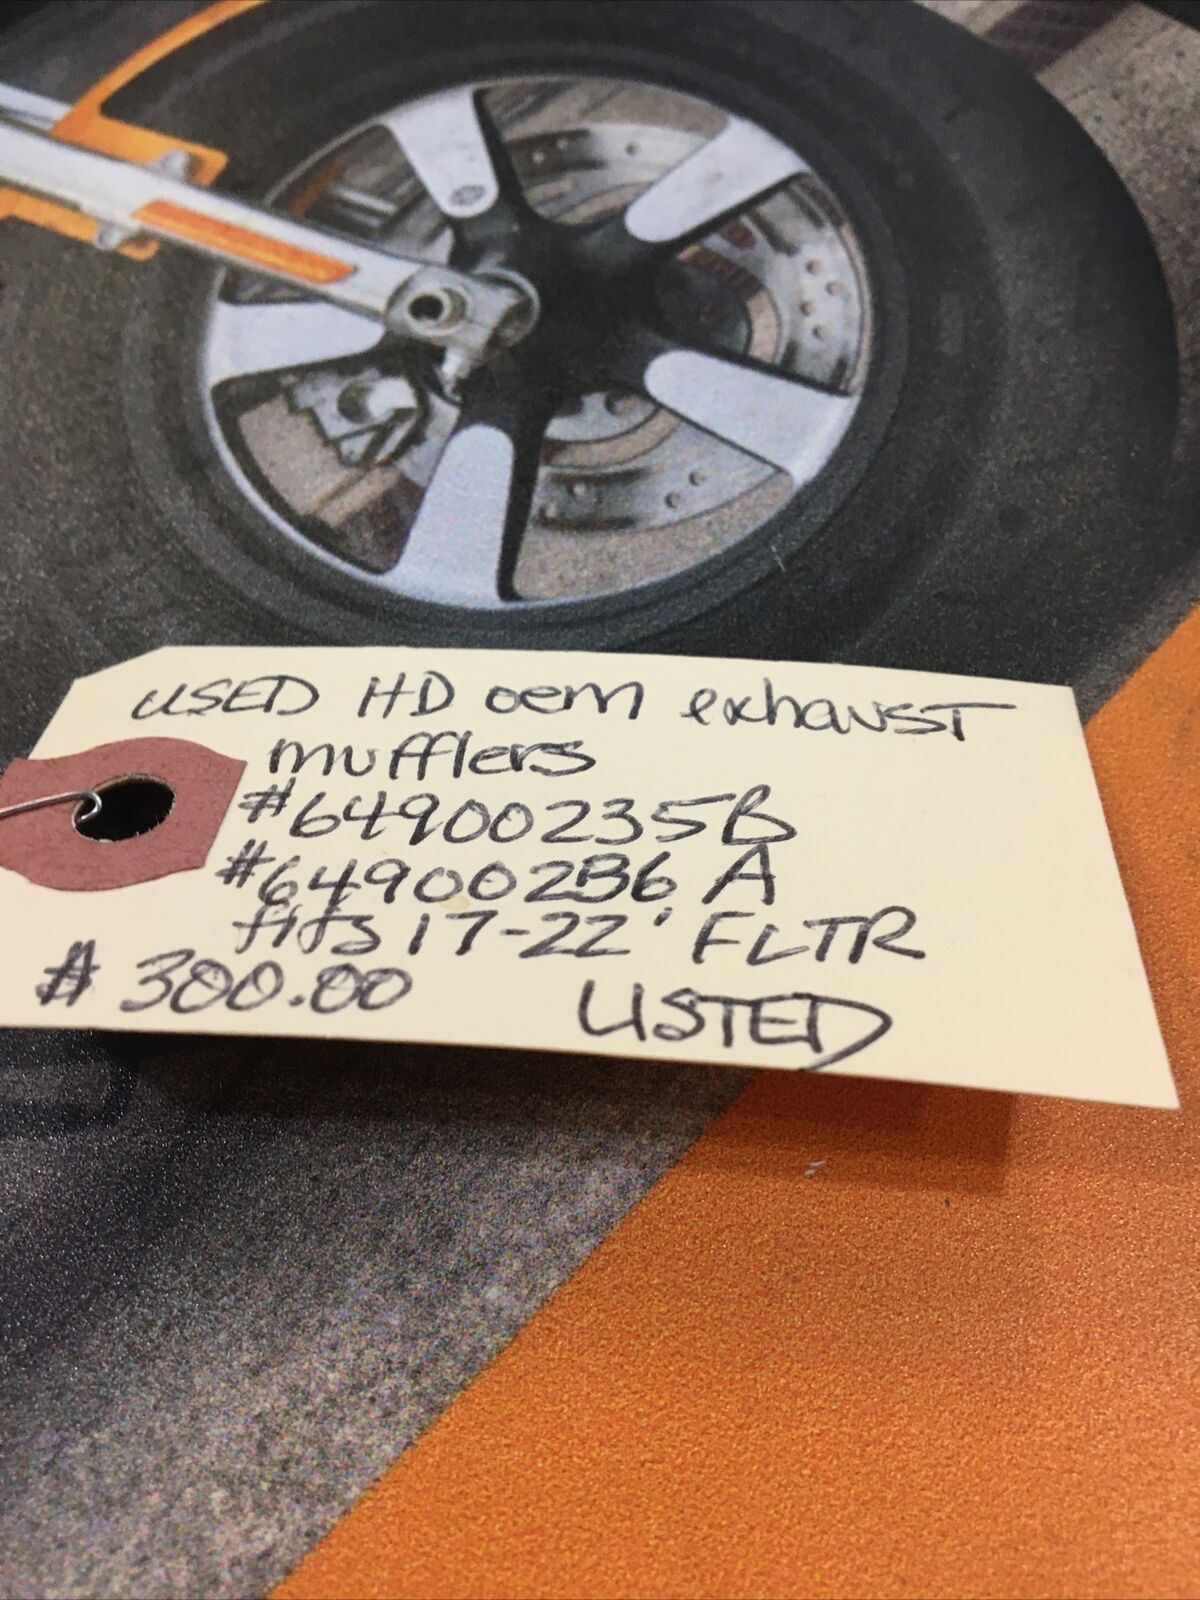 USED HD oem exhaust
mufflers
#64900235B
#64900236 A
fits 17-22' FLTR
$ 300.00 LISTED